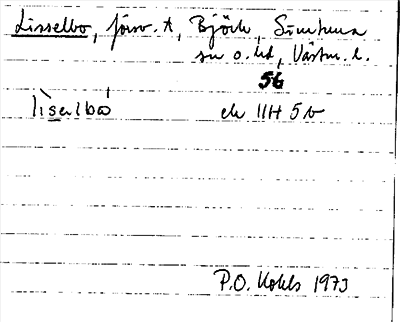 Lisselbo, försv. t, Björk, Simtuna
sn o. hd, Västm. l.
56
lìsəlbó
ek 11H 5b
P.O. Kohls 1973